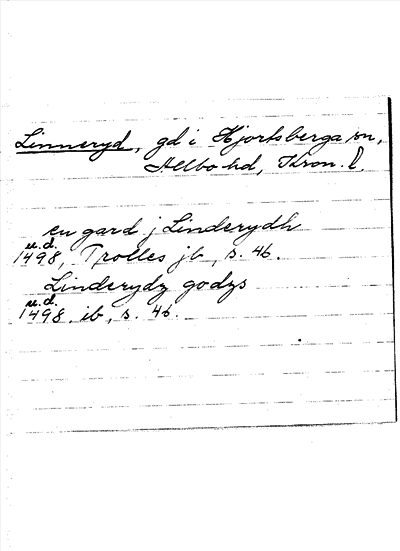 Linneryd, gd i Hjortsberga sn,
Allbo hd, Kron. l.
en gard j Linderydh
u.d.
1498, Trolles jb, s. 46.
Linderydz godzs
u.d.
1498. ib, s. 46.